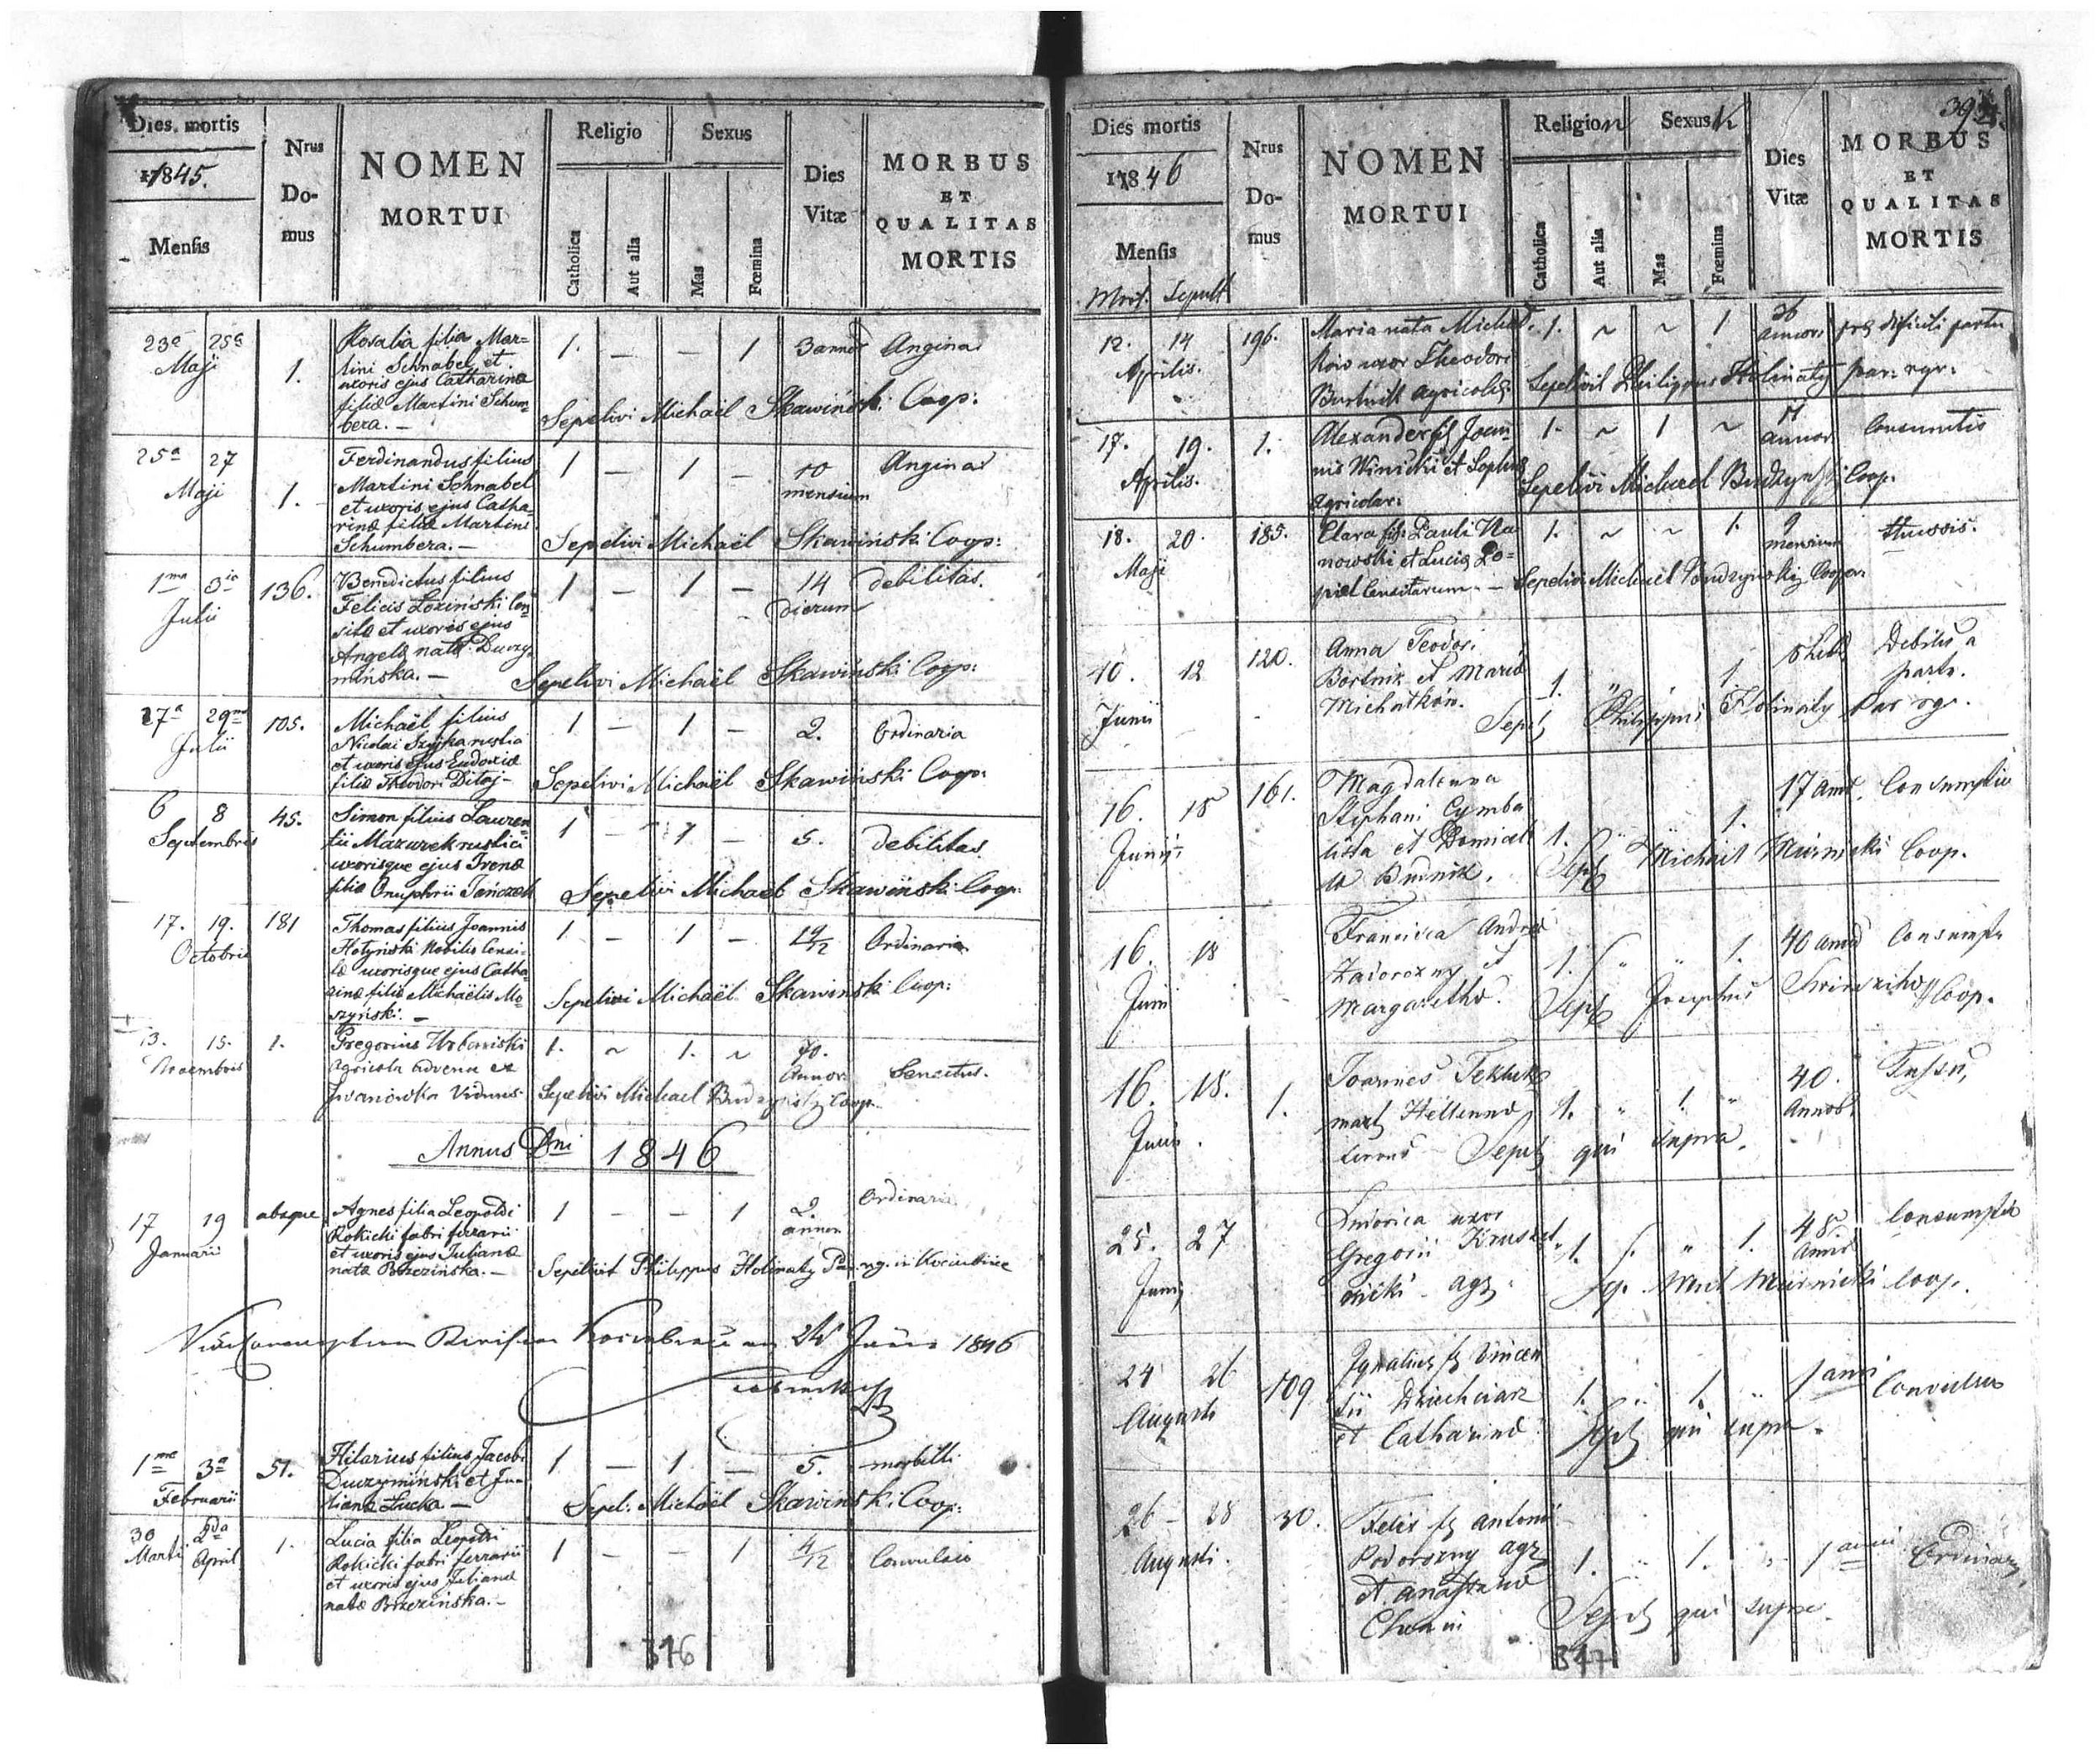 Dies mortis
1845.
Mensis
Nrus
Do-
mus
NOMEN
MORTUI
Religio
Sexus
Catholica
Aut alia
Mas
Fœmina
Dies
Vitæ
MORBUS
ET
QUALITAS
MORTIS
23a 25a
Maji
1.
Rosalia filia Mar=
tini Schnabel et
uxoris ejus Catharina
filiæ Martini Schum=
bera. —
1. — — 1
3 annor
Angina
Sepelivi Michaël Skawiński Coop:
25a 27
Maji
1.
Ferdinandus filius
Martini Schnabel
et uxoris ejus Catha=
rinæ filiæ Martini
Schumbera. —
1 — 1 —
10
mensium
Angina
Sepelivi Michaël Skawiński Coop:
1ma 3ia
Julii
136.
Benedictus filius
Felicis Łoziński Con
sitæ et uxoris ejus
Angelæ nata Duczy
mińska. —
1 — 1 —
14
dierum
debilitas.
Sepelivi Michaël Skawiński Coop:
27a 29na
Julii
105.
Michaël filius
Nicolai
et uxoris ejus Eudoxiæ
filiæ Theodori
1 — 1 —
2.
Ordinaria
Sepelivi Michaël Skawiński Coop:
6 8
Septembris
45.
Simon filius Lauren
tii Mazurek rustici
uxorisque ejus Irenæ
filiæ Onuphrii
1 — 1 —
5.
debilitas
Sepelivi Michaël Skawiński Coop:
17. 19.
Octobris
181
Thomas filius Joannis
Hołyński Nobilis Censi
tæ uxorisque ejus Catha
rinæ filiæ Michaëlis Mo=
szyński. —
1 — 1 —
Ordinaria
Sepelivi Michaël Skawiński Coop:
13. 15.
Novembris
1.
Gregorius Urbański
Agricola advena ex
Iwanówka Viduus
1. ~ 1. ~
70.
Annor
Senectus.
Sepelivi Michael Budzyński Coop
Annus Dni 1846
17 19
Januarii
absque
Agnes filia Leopoldi
Rokicki fabri ferrarii
et uxoris ejus Julianæ
nata Brzezińska. —
1 — — 1
2.
annor
Ordinaria
Sepelivit Philippus Holinaty
1846
1ma 3a
Februarii
51.
Hilarius filius Jacobi
Duczymiński et Ju
lianæ Łucka —
1 — 1 —
5.
morbilli
Sepel: Michaël Skawiński Coop:
30 2da
Martii April
1.
Lucia filia Leopoldi
Rokicki fabri ferrarii
et uxoris ejus Julianæ
nata Brzezińska. —
1 — — 1
4/12
Convulsio
316
39
Dies mortis
1846
Mensis
Mort. Sepult
Nrus
Do-
mus
NOMEN
MORTUI
Religio
Sexus
Catholica
Aut alia
Mas
Fœmina
Dies
Vitæ
MORBUS
ET
QUALITAS
MORTIS
12. 14
Aprilis.
196.
Maria nata Michał
ków uxor Theodori
Bortnik agricolæ
1. ~ ~ 1
26
annor
difficili partu
Sepelivit Philippus Holinaty par: rgr:
17. 19.
Aprilis.
1.
Alexander fil Joan
nis Winicki et Sophiæ
agricolar:
1. ~ 1 ~
annor
Consumtio
Sepelivi Michael Budzyński Coop.
18. 20.
Maji
185.
Clara fil: Pauli Ha
nowski et Lucia Ło=
piel Censitarum. —
1. ~ ~ 1.
9
mensium
thussis.
Sepelivi Michael Budzyński Cooper
10. 12
Junii
120.
Anna Teodori
Bortnik et Maria
Michałków.
1. 1.
Debilis a
partu.
Sept Philippus Holinaty Par rgr.
16. 18
Junii
161.
Magdalena
Stephani Cymba
lista et
Budnik.
1. 1.
17 ann.
Consumptio
Sept Michael Coop.
16. 18
Junii
Francisca Andreæ
Zadorozny et
Margaretha.
1. 1.
40 annor
Consumptio
Sept Josephus Coop.
16. 18.
Junii.
1.
Joannes
marit Hellenna
1. 1.
40.
Annor.
Tussis,
Sept qui supra.
25. 27
Junii
Ludovica uxor
Gregorii
nicki agr.
1. 1.
48
Annor
Consumptio
Sep. Mich Coop.
24 26
Augusti
109
Ignatius fil Vincen
tii
et Catharina
1. 1.
1 anni
Convulsio
Sept qui supra.
26 28
Augusti.
30.
Felix fil Antonii
Podorozny agr
et Anastasia
1. 1.
1 anni
Ordinaria
Sept qui supra.
317